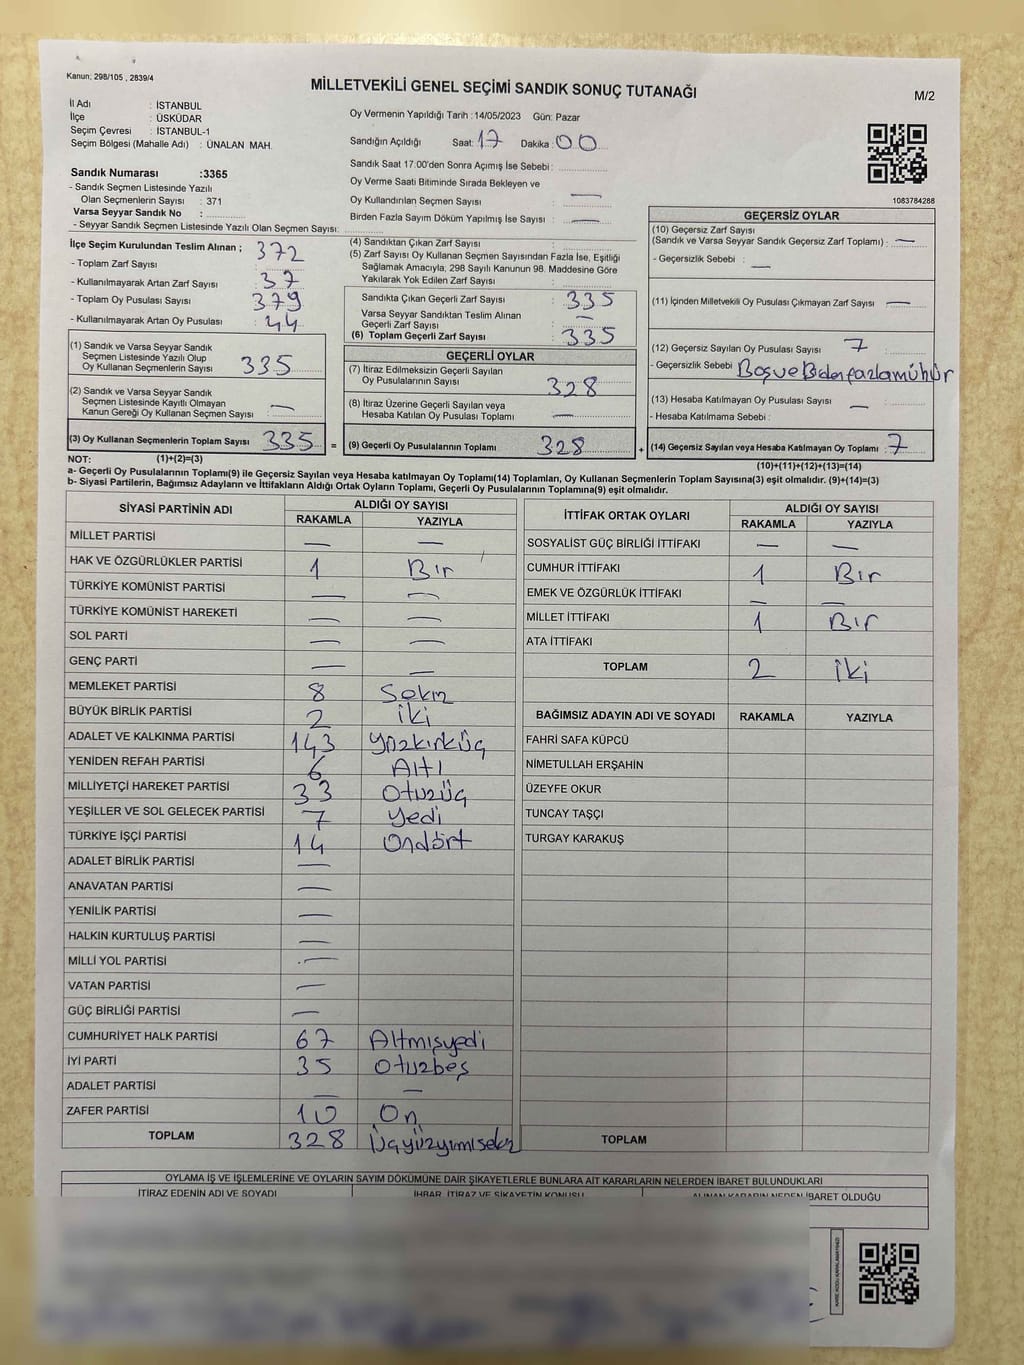 Kanun: 298/105 , 2839/4
MİLLETVEKİLİ GENEL SEÇİMİ SANDIK SONUÇ TUTANAĞI
M/2
İl Adı : İSTANBUL
İlçe : ÜSKÜDAR
Seçim Çevresi : İSTANBUL-1
Seçim Bölgesi (Mahalle Adı) : ÜNALAN MAH.
Sandık Numarası :3365
- Sandık Seçmen Listesinde Yazılı
Olan Seçmenlerin Sayısı : 371
Varsa Seyyar Sandık No :
- Seyyar Sandık Seçmen Listesinde Yazılı Olan Seçmen Sayısı:
Oy Vermenin Yapıldığı Tarih : 14/05/2023 Gün: Pazar
Sandığın Açıldığı Saat: 17 Dakika : 00
Sandık Saat 17:00'den Sonra Açımış İse Sebebi :
Oy Verme Saati Bitiminde Sırada Bekleyen ve
Oy Kullandırılan Seçmen Sayısı : —
Birden Fazla Sayım Döküm Yapılmış İse Sayısı : —
1083784288
İlçe Seçim Kurulundan Teslim Alınan ; 372
- Toplam Zarf Sayısı
- Kullanılmayarak Artan Zarf Sayısı : 37
- Toplam Oy Pusulası Sayısı : 379
- Kullanılmayarak Artan Oy Pusulası : 44
(1) Sandık ve Varsa Seyyar Sandık
Seçmen Listesinde Yazılı Olup
Oy Kullanan Seçmenlerin Sayısı : 335
(2) Sandık ve Varsa Seyyar Sandık
Seçmen Listesinde Kayıtlı Olmayan
Kanun Gereği Oy Kullanan Seçmen Sayısı : —
(3) Oy Kullanan Seçmenlerin Toplam Sayısı : 335 =
(4) Sandıktan Çıkan Zarf Sayısı :
(5) Zarf Sayısı Oy Kullanan Seçmen Sayısından Fazla İse, Eşitliği
Sağlamak Amacıyla, 298 Sayılı Kanunun 98. Maddesine Göre
Yakılarak Yok Edilen Zarf Sayısı :
Sandıkta Çıkan Geçerli Zarf Sayısı : 335
Varsa Seyyar Sandıktan Teslim Alınan
Geçerli Zarf Sayısı : —
(6) Toplam Geçerli Zarf Sayısı : 335
GEÇERLİ OYLAR
(7) İtiraz Edilmeksizin Geçerli Sayılan
Oy Pusulalarının Sayısı : 328
(8) İtiraz Üzerine Geçerli Sayılan veya
Hesaba Katılan Oy Pusulası Toplamı : —
(9) Geçerli Oy Pusulalarının Toplamı : 328 +
GEÇERSİZ OYLAR
(10) Geçersiz Zarf Sayısı
(Sandık ve Varsa Seyyar Sandık Geçersiz Zarf Toplamı) : —
- Geçersizlik Sebebi : —
(11) İçinden Milletvekili Oy Pusulası Çıkmayan Zarf Sayısı : —
(12) Geçersiz Sayılan Oy Pusulası Sayısı : 7
- Geçersizlik Sebebi : Boş ve Birden fazla mühür
(13) Hesaba Katılmayan Oy Pusulası Sayısı : —
- Hesaba Katılmama Sebebi :
(14) Geçersiz Sayılan veya Hesaba Katılmayan Oy Toplamı : 7
NOT: (1)+(2)=(3) (10)+(11)+(12)+(13)=(14)
a- Geçerli Oy Pusulalarının Toplamı(9) ile Geçersiz Sayılan veya Hesaba katılmayan Oy Toplamı(14) Toplamları, Oy Kullanan Seçmenlerin Toplam Sayısına(3) eşit olmalıdır. (9)+(14)=(3)
b- Siyasi Partilerin, Bağımsız Adayların ve İttifakların Aldığı Ortak Oyların Toplamı, Geçerli Oy Pusulalarının Toplamına(9) eşit olmalıdır.
SİYASİ PARTİNİN ADI ALDIĞI OY SAYISI
RAKAMLA YAZIYLA
MİLLET PARTİSİ — —
HAK VE ÖZGÜRLÜKLER PARTİSİ 1 Bir
TÜRKİYE KOMÜNİST PARTİSİ — —
TÜRKİYE KOMÜNİST HAREKETİ — —
SOL PARTİ — —
GENÇ PARTİ — —
MEMLEKET PARTİSİ 8 Sekiz
BÜYÜK BİRLİK PARTİSİ 2 İki
ADALET VE KALKINMA PARTİSİ 143 Yüzkırküç
YENİDEN REFAH PARTİSİ 6 Altı
MİLLİYETÇİ HAREKET PARTİSİ 33 Otuzüç
YEŞİLLER VE SOL GELECEK PARTİSİ 7 Yedi
TÜRKİYE İŞÇİ PARTİSİ 14 Ondört
ADALET BİRLİK PARTİSİ —
ANAVATAN PARTİSİ —
YENİLİK PARTİSİ —
HALKIN KURTULUŞ PARTİSİ —
MİLLİ YOL PARTİSİ —
VATAN PARTİSİ —
GÜÇ BİRLİĞİ PARTİSİ —
CUMHURİYET HALK PARTİSİ 67 Altmışyedi
İYİ PARTİ 35 Otuzbeş
ADALET PARTİSİ — —
ZAFER PARTİSİ 10 On
TOPLAM 328 Üçyüzyirmisekiz
İTTİFAK ORTAK OYLARI ALDIĞI OY SAYISI
RAKAMLA YAZIYLA
SOSYALİST GÜÇ BİRLİĞİ İTTİFAKI — —
CUMHUR İTTİFAKI 1 Bir
EMEK VE ÖZGÜRLÜK İTTİFAKI — —
MİLLET İTTİFAKI 1 Bir
ATA İTTİFAKI
TOPLAM 2 İki
BAĞIMSIZ ADAYIN ADI VE SOYADI RAKAMLA YAZIYLA
FAHRİ SAFA KÜPCÜ
NİMETULLAH ERŞAHİN
ÜZEYFE OKUR
TUNCAY TAŞÇI
TURGAY KARAKUŞ
TOPLAM
OYLAMA İŞ VE İŞLEMLERİNE VE OYLARIN SAYIM DÖKÜMÜNE DAİR ŞİKAYETLERLE BUNLARA AİT KARARLARIN NELERDEN İBARET BULUNDUKLARI
İTİRAZ EDENİN ADI VE SOYADI İHBAR, İTİRAZ VE ŞİKAYETİN KONUSU ALINAN KARARIN NEDEN İBARET OLDUĞU